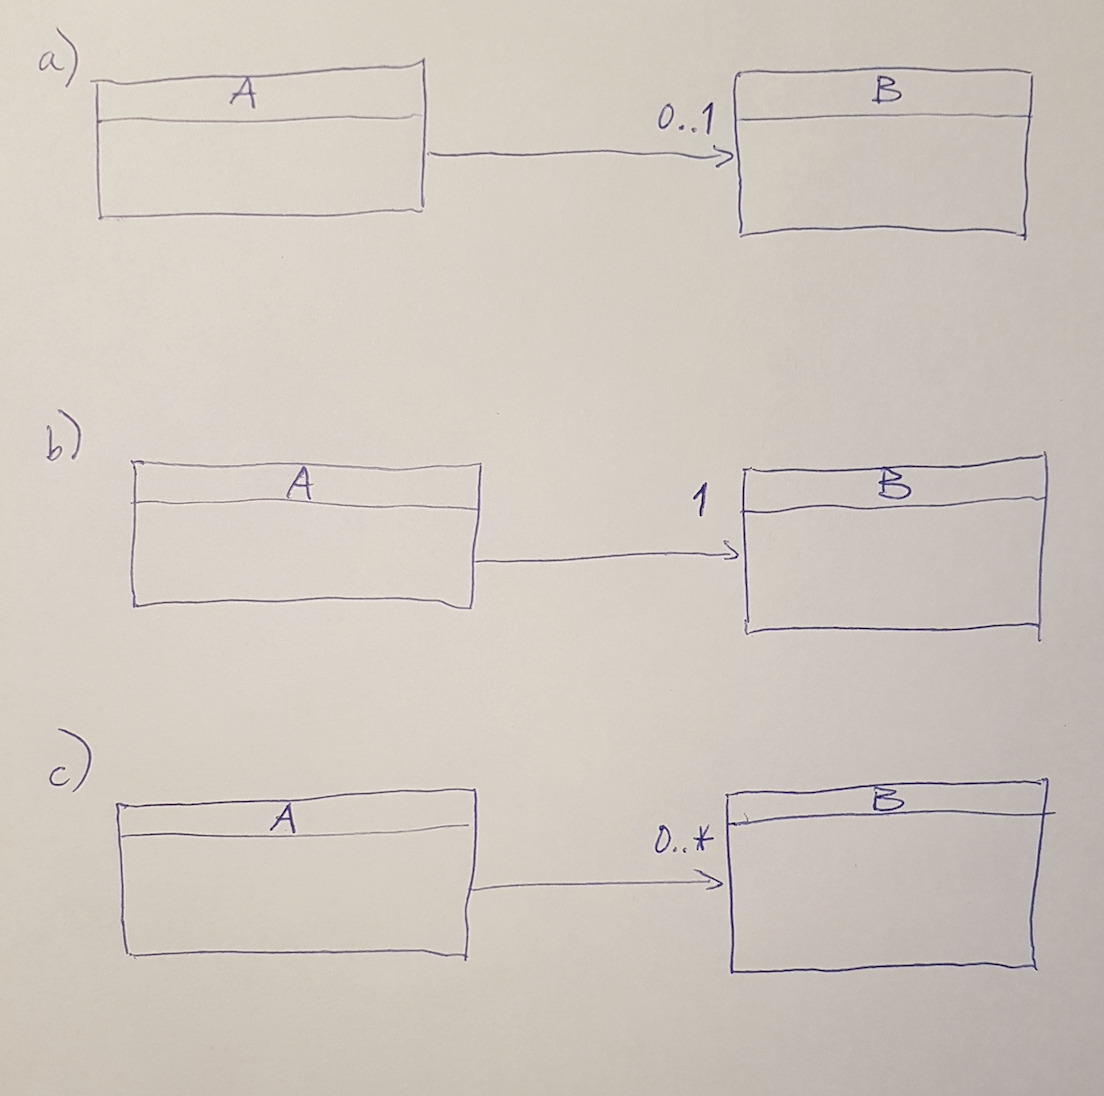 a)
A
0..1
B
b)
A
1
B
c)
A
0..*
B